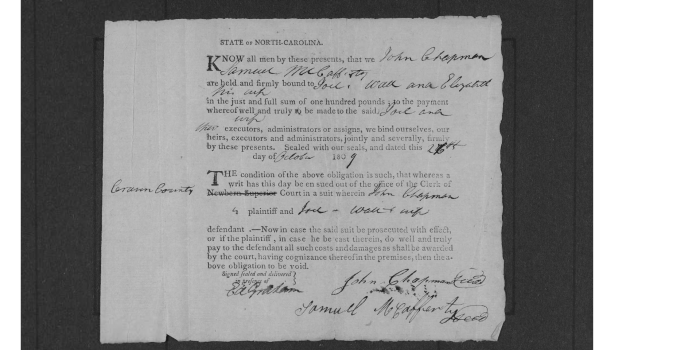 STATE OF NORTH-CAROLINA.
KNOW all men by these presents, that we John Chapman
Samuel McCafferty
are held and firmly bound to Joel Wall and Elizabeth
his wife
in the just and full sum of one hundred pounds; to the payment
whereof well and truly to be made to the said, Joel and
wife
their executors, administrators or assigns, we bind ourselves, our
heirs, executors and administrators, jointly and severally, firmly
by these presents. Sealed with our seals, and dated this 26th
day of October 1809
THE condition of the above obligation is such, that whereas a
writ has this day been sued out of the office of the Clerk of
Craven County
Newbern Superior Court in a suit wherein John Chapman
is plaintiff and Joel Wall & wife
defendant.—Now in case the said suit be prosecuted with effect,
or if the plaintiff, in case he be cast therein, do well and truly
pay to the defendant all such costs and damages as shall be awarded
by the court, having cognizance thereof in the premises, then the a-
bove obligation to be void.
Signed sealed and delivered
in presence of
Ed Graham
John Chapman Seal
Samuell McCafferty Seal